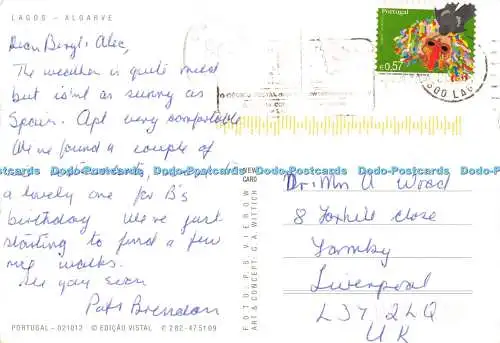 LAGOS - ALGARVE
Dear Beryl & Alec,
The weather is quite mixed
but isn't as sunny as
Spain. Apt very comfortable
We've found a couple of
a lovely one for B's
birthday We've just
starting to find a few
nice walks.
See you soon
Pat & Brendan
PORTUGAL - 021012 © EDIÇÃO VISTAL © 282-475109
FOTO: P.S VIEROW
ART & CONCEPT: G.A. WITTICH
VIEW
CARD
Portugal
€0,57
Dr & Mrs A Wood
8 Foxhill Close
Formby
Liverpool
L37 2LQ
UK
Dodo-Postcards Dodo-Postcards Dodo-Postcards Dodo-Postcards Dodo-Postcards Dodo-Postcards